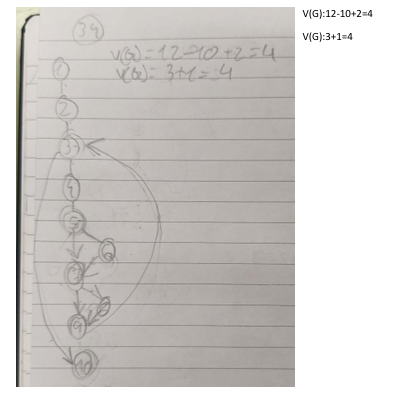 39
V(G)=12-10+2=4
V(G)= 3+1=4
1
2
3
4
5
6
7
8
9
10
V(G):12-10+2=4
V(G):3+1=4